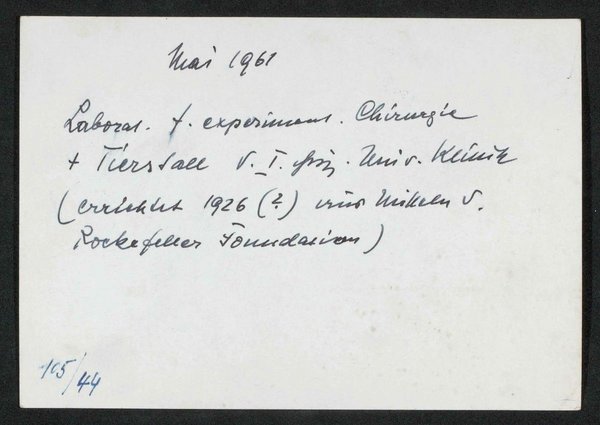 Mai 1961
Laborat. f. experiment. Chirurgie
+ Tierstall d. I. chir. Univ. Klinik
(errichtet 1926 (?) aus Mitteln d.
Rockefeller Foundation)
105/44